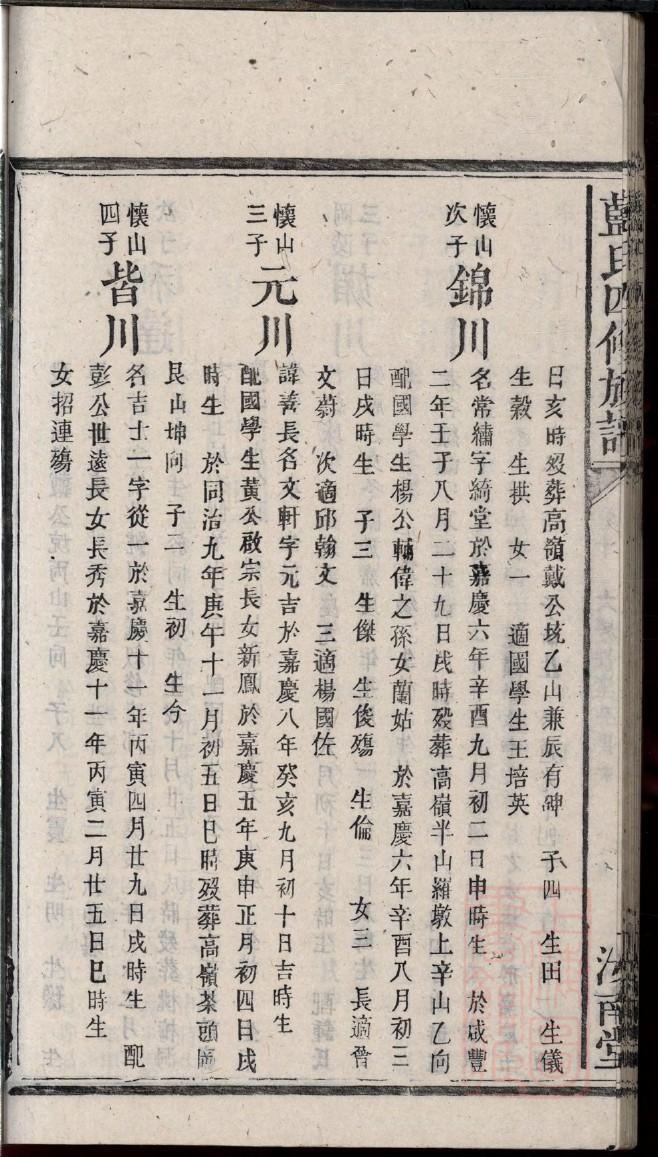 藍氏四修族譜
汝南堂
日亥時歿葬高嶺戴公坑乙山兼辰有碑 子四 生田 生儀
生榖 生栱 女一 適國學生王培英
懷山
次子
錦川
名常繡字綺堂於嘉慶六年辛酉九月初二日申時生 於咸豐
二年壬子八月二十九日戌時歿葬高嶺半山羅墩上辛山乙向
配國學生楊公輔偉之孫女蘭姑 於嘉慶六年辛酉八月初三
日戌時生 子三 生傑 生俊殤 生倫 女三 長適晉
文蔚 次適邱翰文 三適楊國佐
懷山
三子
元川
諱善長名文軒字元吉於嘉慶八年癸亥九月初十日吉時生
配國學生黃公啟宗長女新鳳於嘉慶五年庚申正月初四日戌
時生 於同治九年庚午十一月初五日巳時歿葬高嶺茶頭
艮山坤向 子二 生初 生分
懷山
四子
皆川
名吉士一字從一於嘉慶十一年丙寅四月廿九日戌時生 配
彭公世遠長女長秀於嘉慶十一年丙寅二月廿五日巳時生
女招連殤